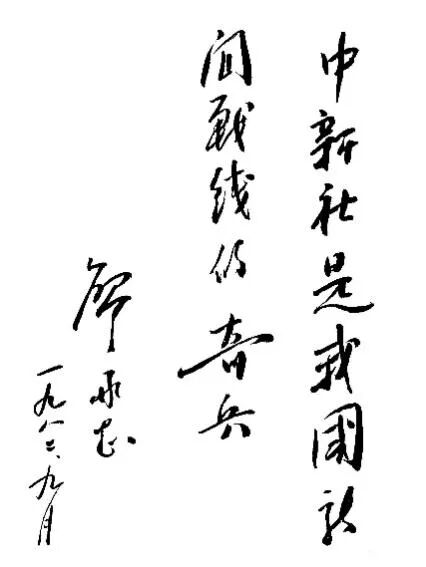 中新社是我國新
闻战线的奇兵
廖承志
一九八二、九月